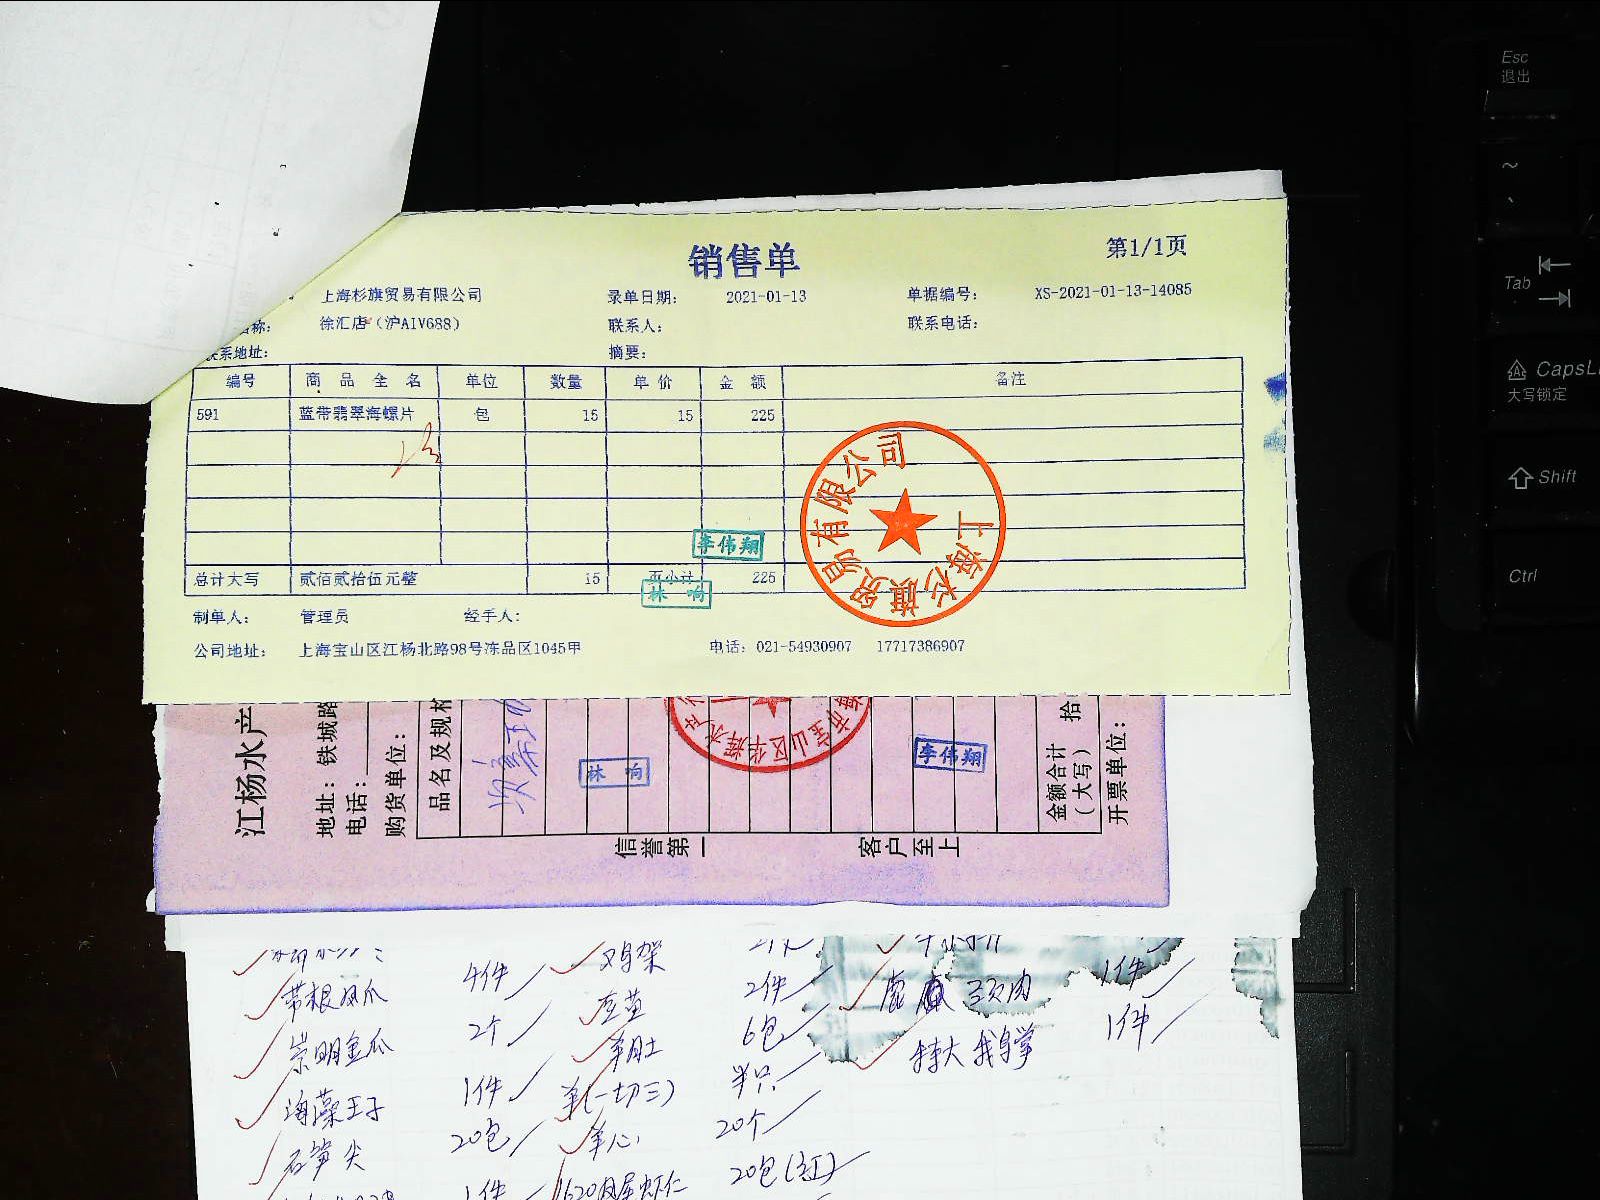 销售单
第1/1页
上海杉旗贸易有限公司 录单日期: 2021-01-13 单据编号: XS-2021-01-13-14085
名称: 徐汇店(沪AIV688) 联系人: 联系电话:
联系地址: 摘要:
编号 商品全名 单位 数量 单价 金额 备注
591 蓝带翡翠海螺片 包 15 15 225
李伟翔
总计大写 贰佰贰拾伍元整 15 页小计 225
林响
上海杉旗贸易有限公司
制单人: 管理员 经手人:
公司地址: 上海宝山区江杨北路98号冻品区1045甲 电话: 021-54930907 17717386907
江杨水产
地址: 铁城路
电话:
购货单位:
品名及规格
林响
李伟翔
金额合计 拾
(大写)
开票单位:
信誉第一 客户至上
4件 鸡架
带根凤爪 2个 2件 1件
崇明金瓜 1件 羊肚 6包 特大 1件
海藻王子 20包 羊(一切三) 半只
石笋尖 1件 羊心 20个
20包(红)
Esc
退出
~
Tab
CapsL
大写锁定
Shift
Ctrl